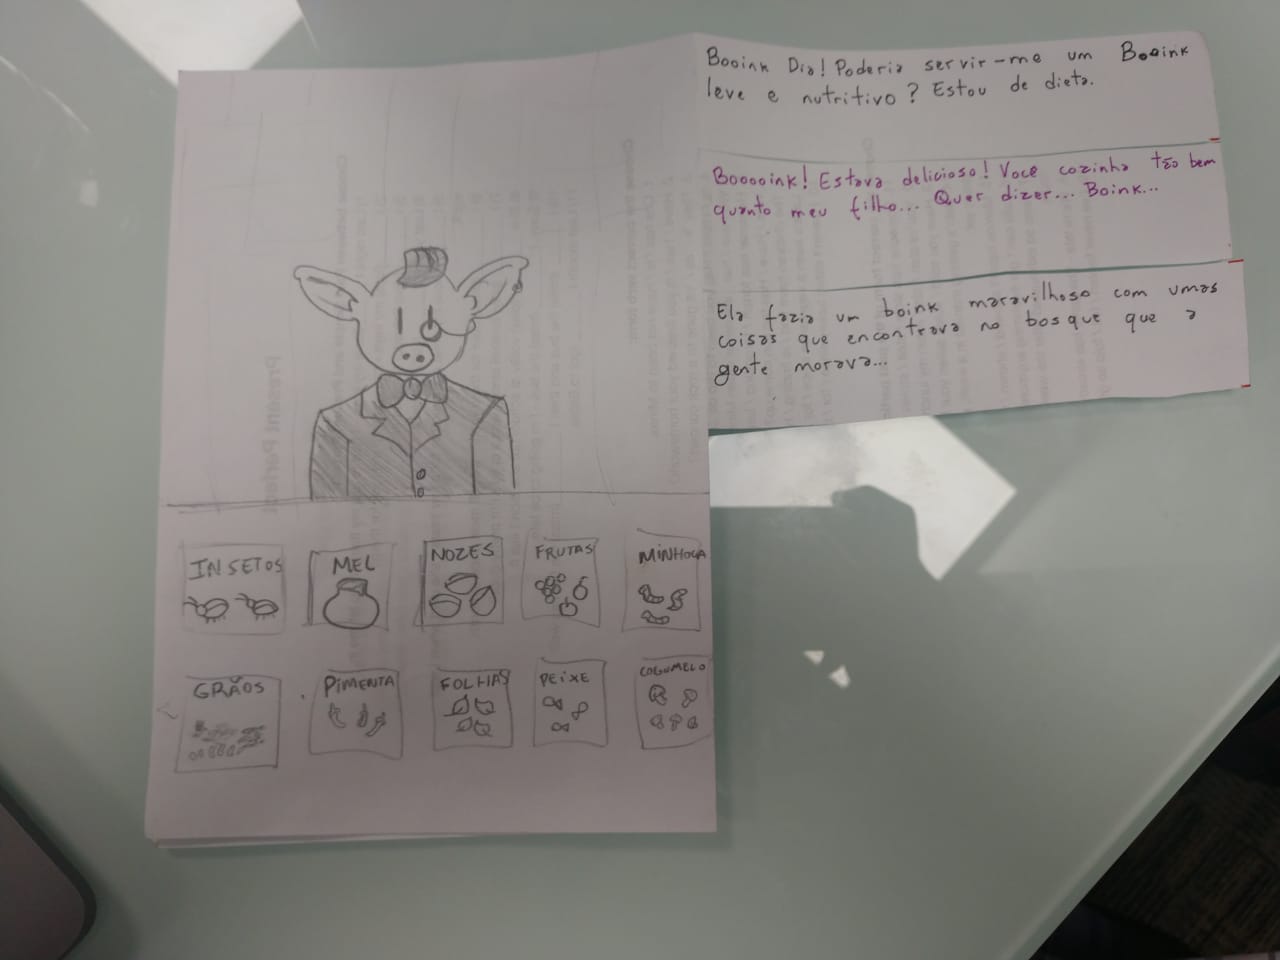 Booink Dia! Poderia servir-me um Booink
leve e nutritivo? Estou de dieta.
Booooink! Estava delicioso! Você cozinha tão bem
quanto meu filho... Quer dizer... Boink...
Ela fazia um boink maravilhoso com umas
coisas que encontrava no bosque que a
gente morava...
INSETOS MEL NOZES FRUTAS MINHOCA
GRÃOS PIMENTA FOLHAS PEIXE COGUMELO